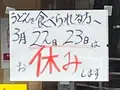 うどんを食べられる方へ
3月22日23日は
お休み
します